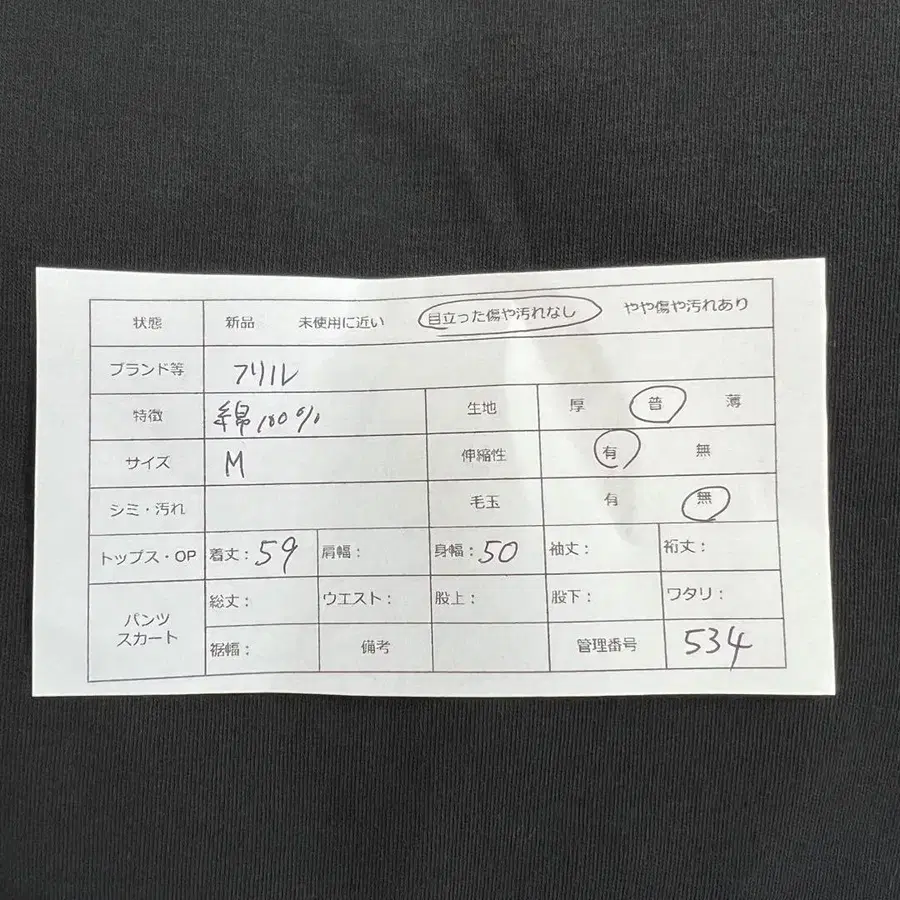 状態 新品 未使用に近い 目立った傷や汚れなし やや傷や汚れあり
ブランド等 フリル
特徴 綿100% 生地 厚 普 薄
サイズ M 伸縮性 有 無
シミ・汚れ 毛玉 有 無
トップス・OP 着丈：59 肩幅： 身幅：50 袖丈： 裄丈：
パンツ スカート 総丈： ウエスト： 股上： 股下： ワタリ：
裾幅： 備考 管理番号 534